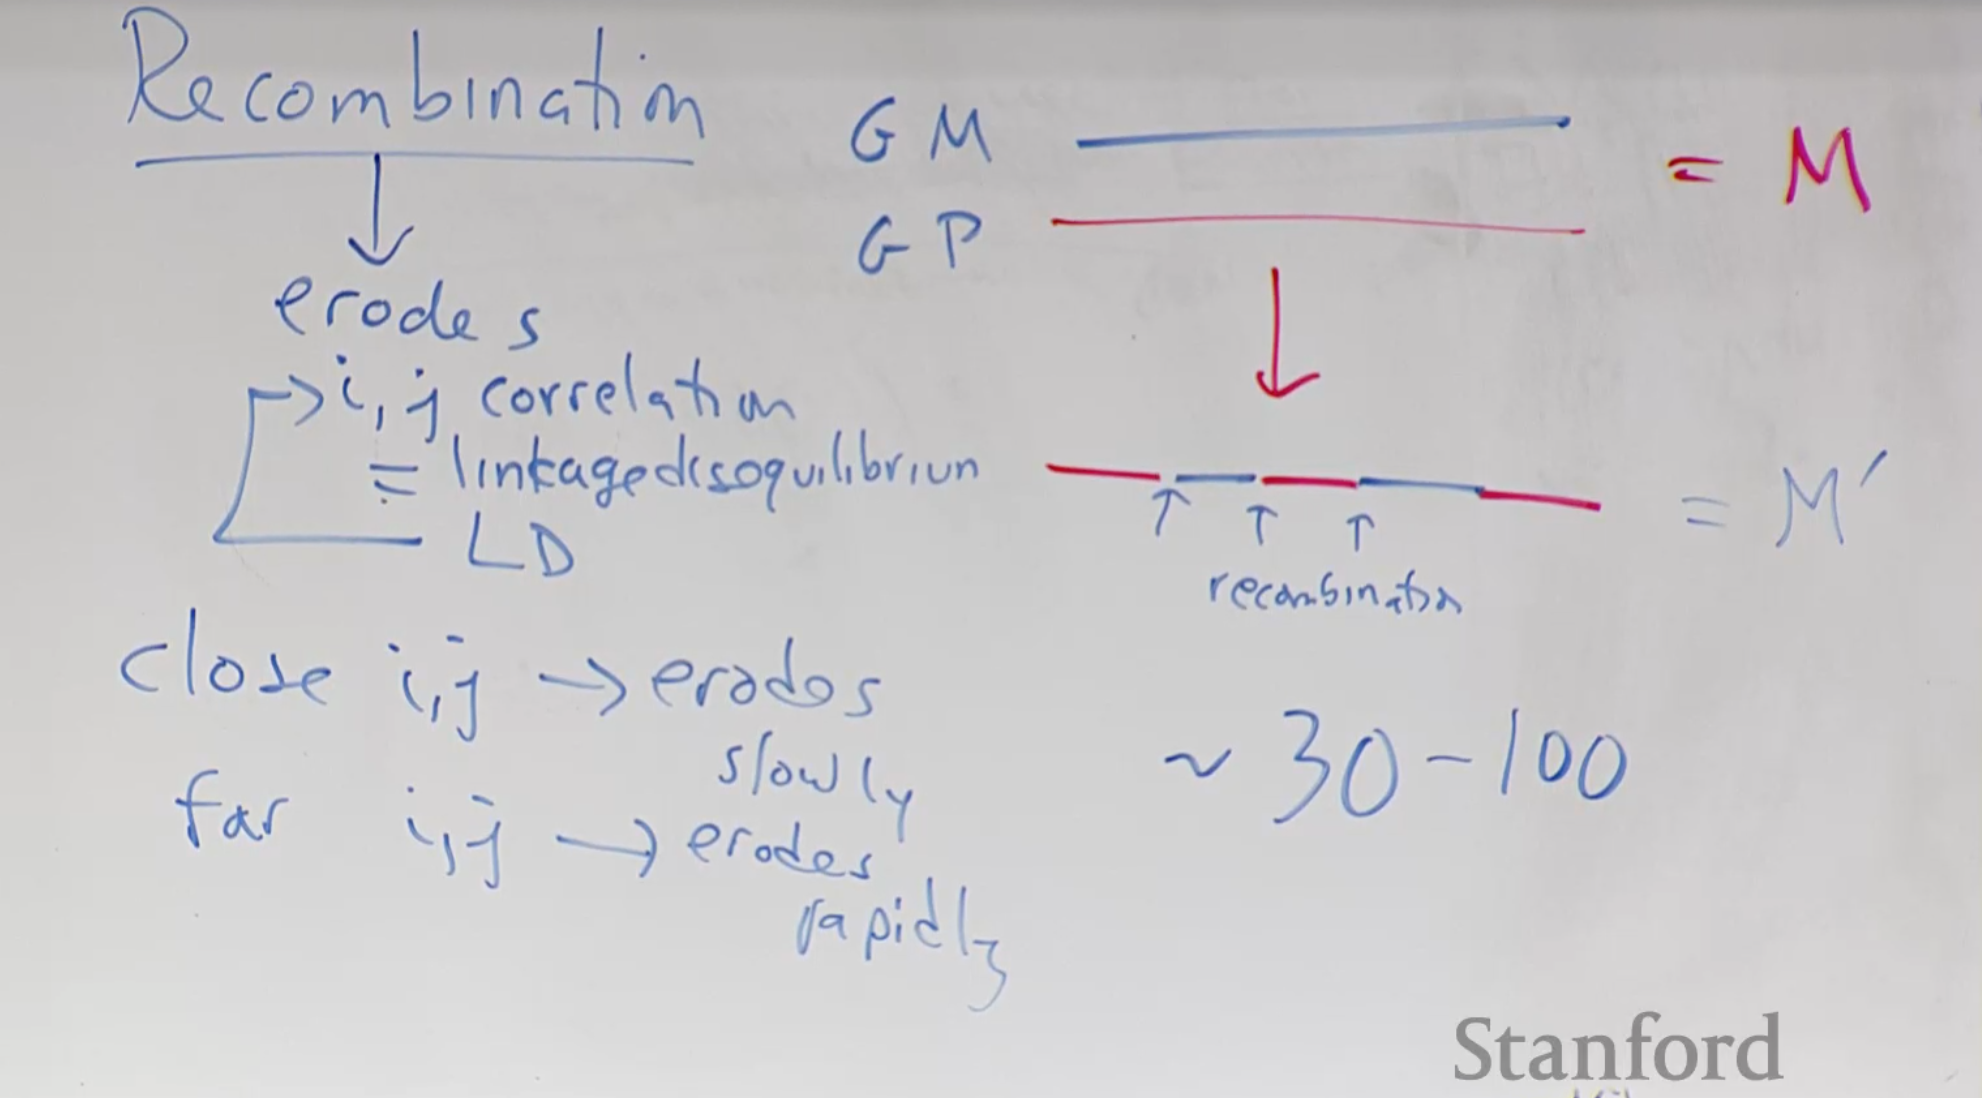 Recombination
erodes
i, j correlation
= linkage disequilibrium
LD
close i,j → erodes
slowly
far i,j → erodes
rapidly
GM
= M
GP
= M′
↑ ↑ ↑
recombination
~ 30-100
Stanford